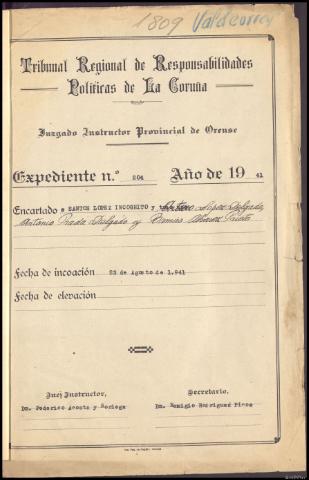 1809 Valdeorras
Tribunal Regional de Responsabilidades
Políticas de La Coruña
Juzgado Instructor Provincial de Orense
Expediente n.º 204 Año de 19 41
Encartado s SANTOS LOPEZ INCOGNITO y Arturo López Delgado,
Antonio Prada Delgado y Álvarez
Fecha de incoación 23 de Agosto de 1.941
Fecha de elevación
Juez Instructor, Secretario,
Dn. Federico Acosta y Noriega Dn. Remigio Rodriguez